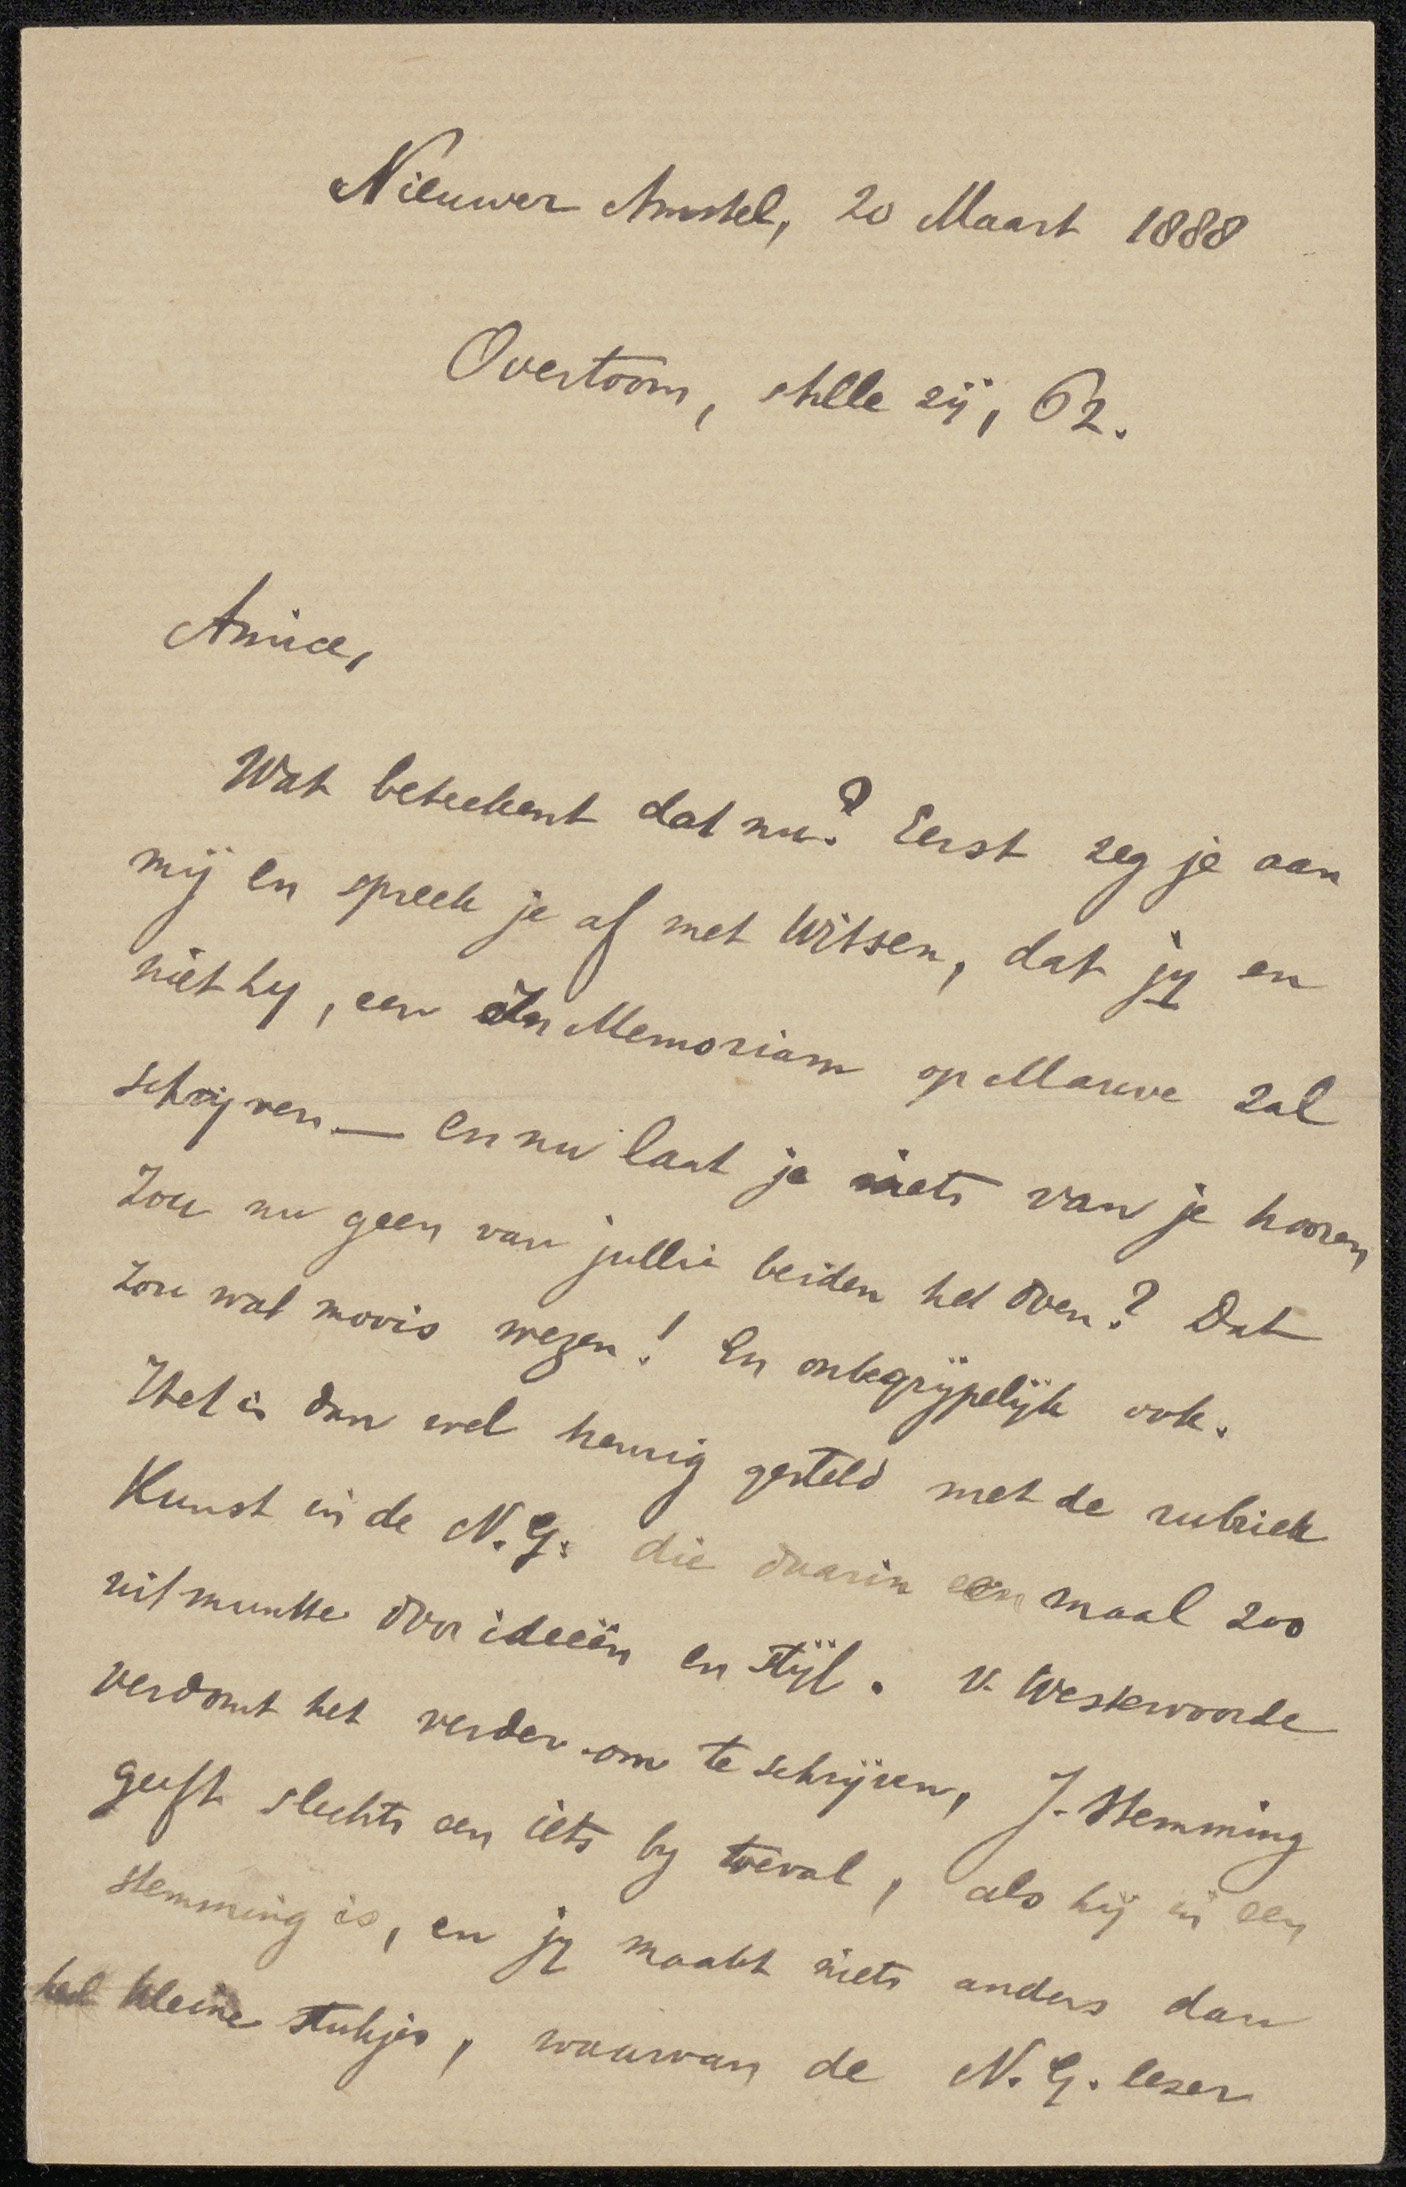 Nieuwer Amstel, 20 Maart 1888
Overtoom, stille zij, 62.
Amice,
Wat beteekent dat nu? Eerst zeg je aan
mij en spreek je af met Witsen, dat jy en
niet hy, een In Memoriam op Mauve zal
schrijven — en nu laat je niets van je hooren
Zou nu geen van jullie beiden het doen? Dat
zou wat moois wezen! En onbegrijpelijk ook.
Het is dan wel heurig gesteld met de rubriek
Kunst in de N.G. die daarin eenmaal zoo
uitmuntte door ideeën en stijl. V. Westervoorde
verdomt het verder om te schrijven, J. Stemming
geeft slechts een iets by toeval, als hij in een
stemming is, en jy maakt niets anders dan
heel kleine stukjes, waarvan de N.G. lezer